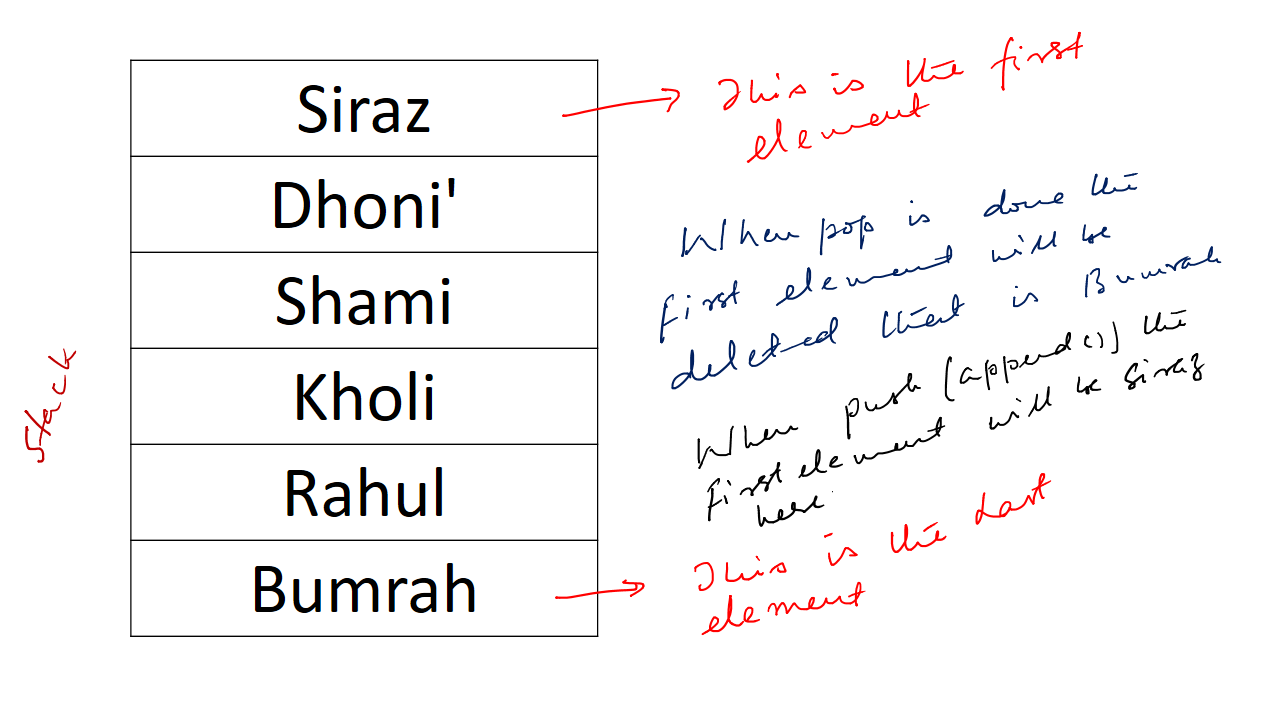 Siraz
This is the first
element
Dhoni'
When pop is done the
first element will be
deleted that is Bumrah
Shami
Stack
Kholi
When push (append()) the
first element will be siraz
here.
Rahul
This is the Last
element
Bumrah